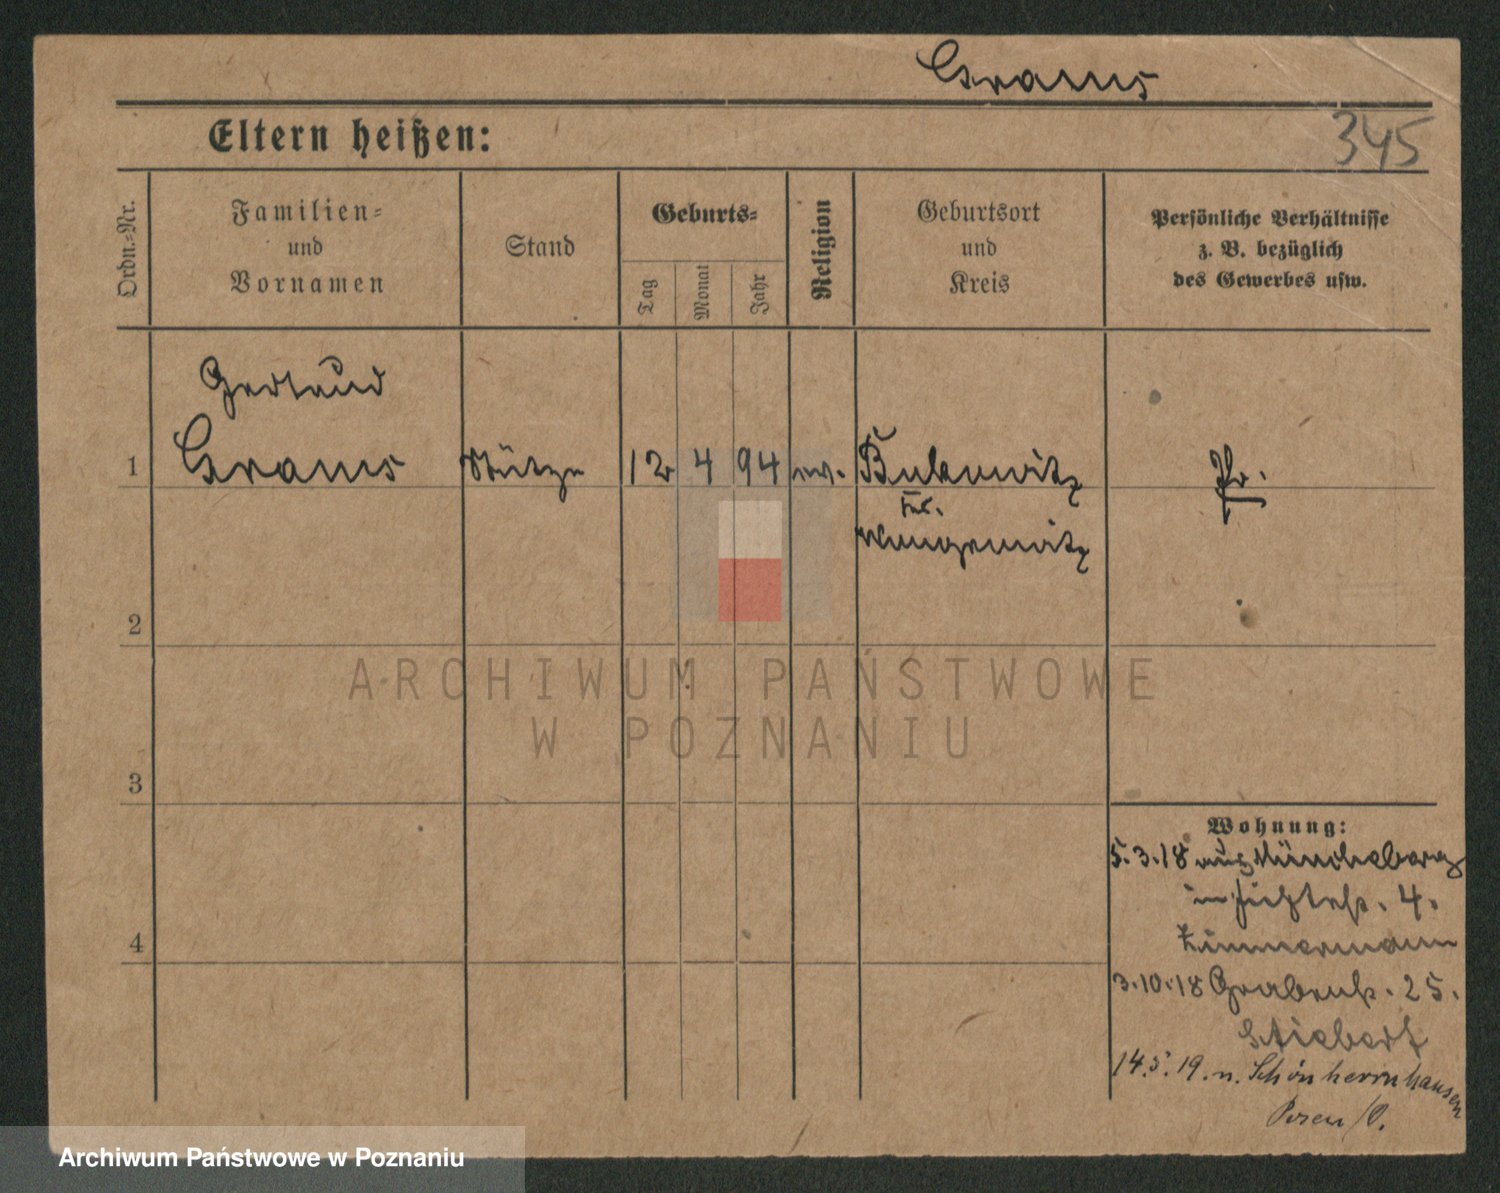 Grams
Eltern heißen:
345
Ordn.-Nr.
Familien-
und
Vornamen
Stand
Geburts-
Tag
Monat
Jahr
Religion
Geburtsort
und
Kreis
Persönliche Verhältnisse
z. B. bezüglich
des Gewerbes usw.
Gertrud
1 Grams Stütze 12 4 94 ev. Bukowitz Pr.
Krs.
2
3
4
Wohnung:
5.3.18 aus Müncheberg
in Fichtestr. 4.
Zimmermann
3.10.18 Grabenstr. 25.
Stiebert
14.5.19. n. Schönherrnhausen
Posen/O.
ARCHIWUM PAŃSTWOWE
W POZNANIU
Archiwum Państwowe w Poznaniu